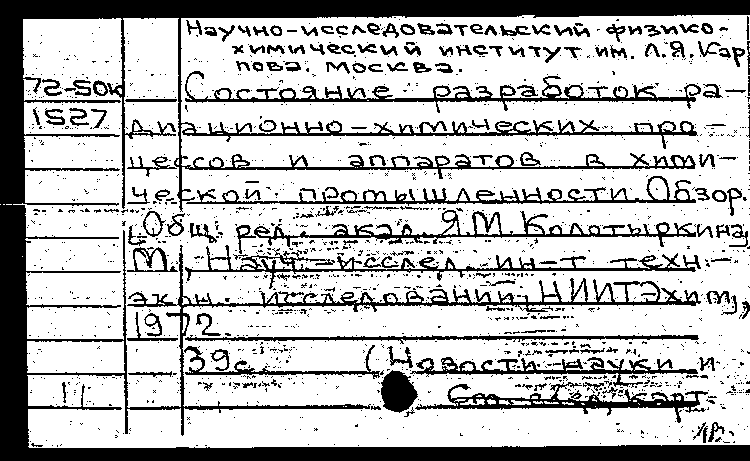 Научно-исследовательский физико-
химический институт им. Л.Я.Кар
пова. Москва.
72-50к Состояние разработок ра-
1527 диационно-химических про-
цессов и аппаратов в хими-
ческой промышленности. Обзор.
[Общ. ред. акад. Я.М. Колотыркина,
М., Науч.-исслед. ин-т техн.-
экон. исследований, НИИТЭхим],
1972.
39с. (Новости науки и
11 См. след. карт.